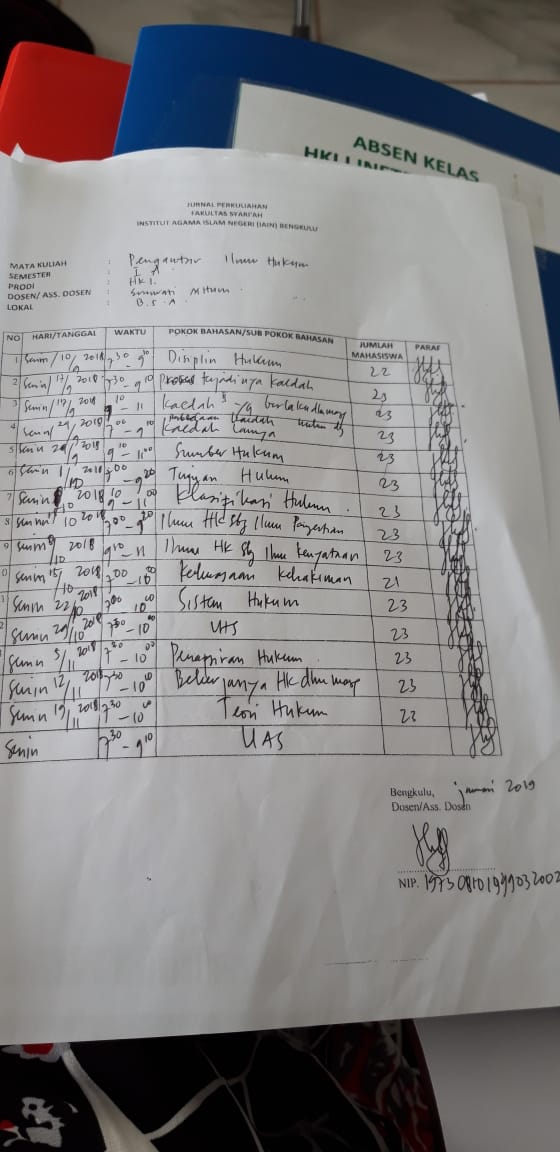 ABSEN KELAS
JURNAL PERKULIAHAN
FAKULTAS SYARI'AH
INSTITUT AGAMA ISLAM NEGERI (IAIN) BENGKULU
MATA KULIAH : Pengantar Ilmu Hukum
SEMESTER : I A
PRODI : HKI.
DOSEN/ ASS. DOSEN :
LOKAL : B.5.A
NO HARI/TANGGAL WAKTU POKOK BAHASAN/SUB POKOK BAHASAN JUMLAH MAHASISWA PARAF
1 Senin/10/9 2018 7 30 - 9 10 Disiplin Hukum 22
2 Senin/17/9 2018 7 30 - 9 10 Proses terjadinya kaedah 23
3 Senin/17/9 2018 9 10 - 11 Kaedah yg berlaku dlm 23
4 Senin/24/9 2018 7 00 - 9 10 Kaedah Lainnya 23
5 Senin 24/9 2018 9 10 - 11 00 Sumber Hukum 23
6 Senin 1/10 2018 7 00 - 9 20 Tujuan Hukum 23
7 Senin 10 2018 9 10 - 11 00 Klasifikasi Hukum 23
8 Senin 10 2018 7 00 - 9 20 Ilmu Hk sbg Ilmu Pengertian 23
9 Senin 8/10 2018 9 10 - 11 Ilmu HK Sbg Ilmu Kenyataan 23
0 Senin 15/10 2018 7 00 - 10 00 Kekuasaan Kehakiman 21
Senin 22/10 2018 7 00 - 10 00 Sistem Hukum 23
Senin 29/10 2018 7 30 - 10 00 UTS 23
Senin 5/11 2018 7 30 - 10 00 Penafsiran Hukum 23
Senin 12/11 2018 7 30 - 10 00 Bekerjanya Hk dlm 23
Senin 19/11 2018 7 30 - 10 00 Teori Hukum 23
Senin 7 30 - 9 10 UAS
Bengkulu, januari 2019
Dosen/Ass. Dosen
NIP. 197308101999032002